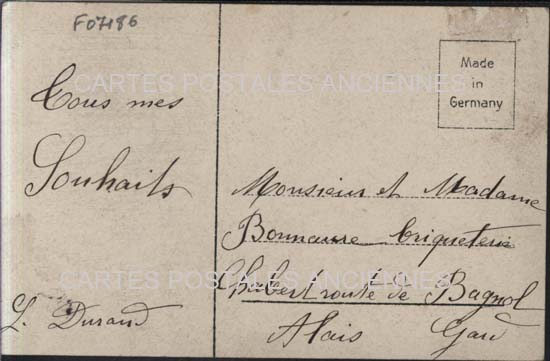 F07186
Made
in
Germany
CARTES POSTALES ANCIENNES
Tous mes
Souhaits
L. Durand
Monsieur et Madame
Bonnaurre briqueterie
Chabert route de Bagnol
Alais Gard
CARTES POSTALES ANCIENNES